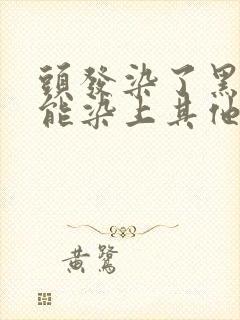 頭發染了黑
能染上其他
黃鷺